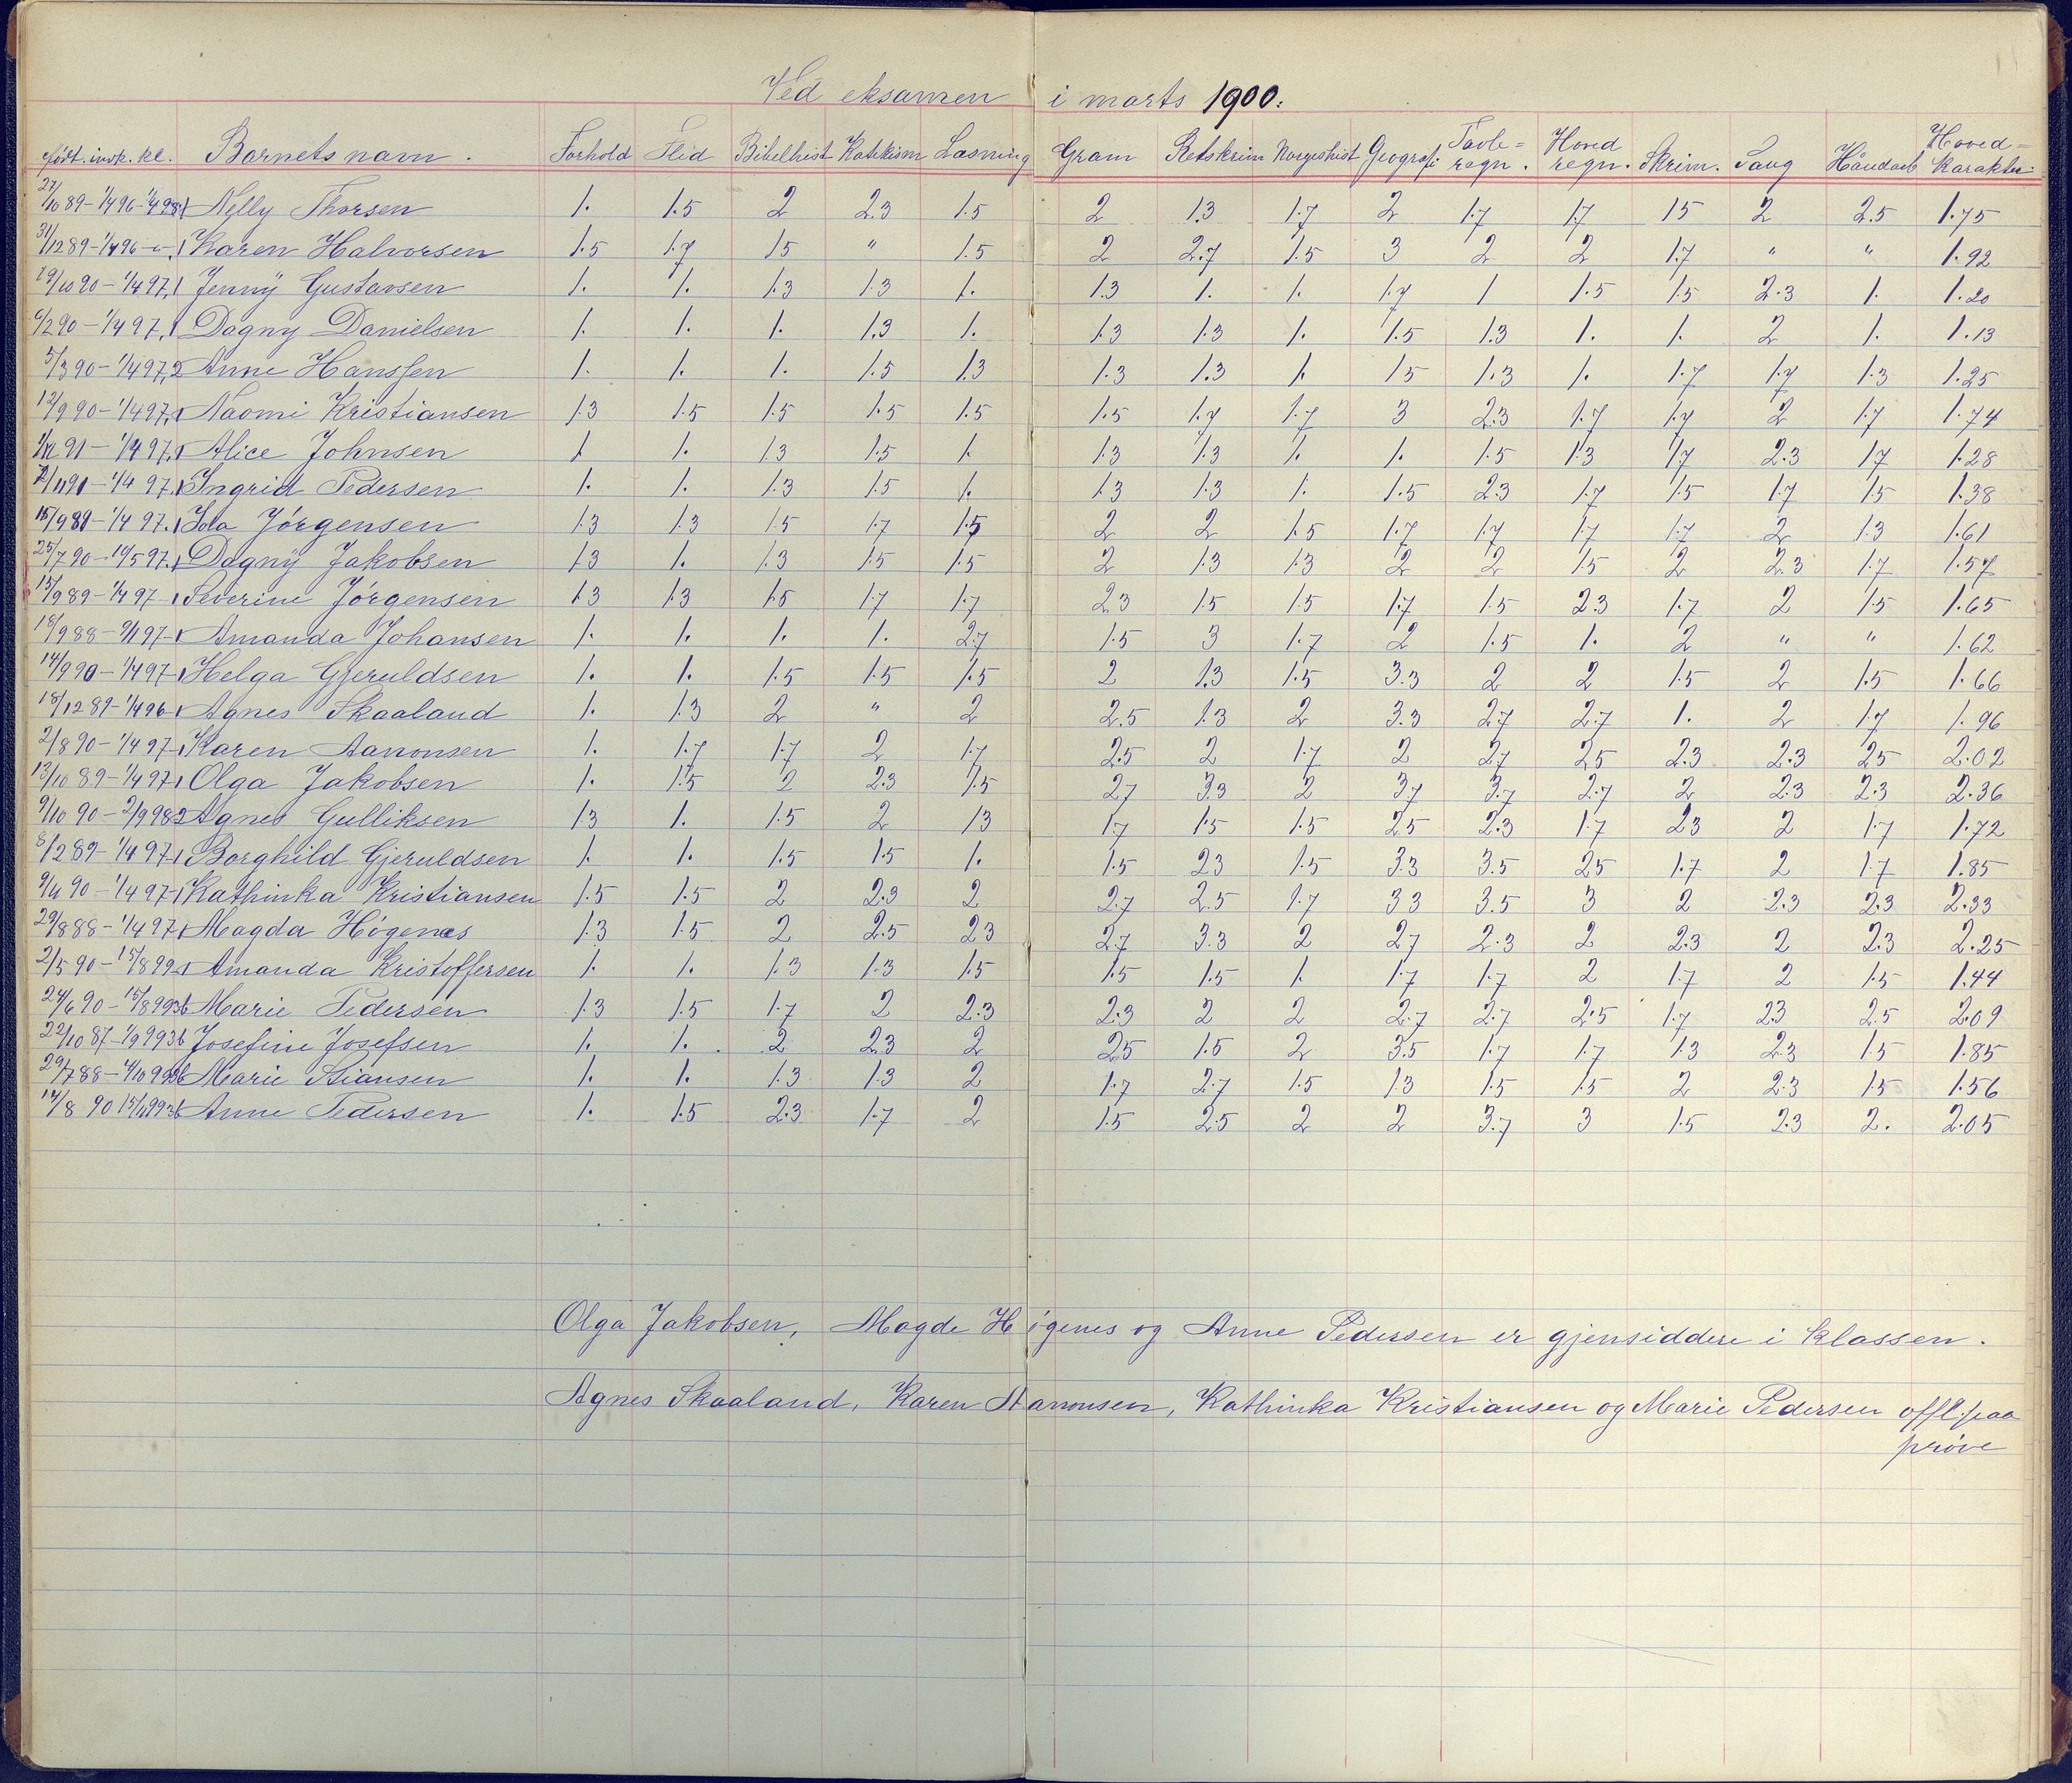 Ved eksamen i marts 1900.
født. insk. kl. Barnets navn. Forhold Flid Bibelhist Katekism Læsning Gram Retskrivn Norgeshist Geografi Tavle=regn. Hoved regn. Skriv. Sang Håndarb Hoved=karakter
27/10 89 - 1/4 96 - 1/4 98.1 Nelly Thorsen 1. 1.5 2 2.3 1.5 2 1.3 1.7 2 1.7 1.7 1.5 2 2.5 1.75
31/12 89 - 1/4 96 - " - 1 Karen Halvorsen 1.5 1.7 1.5 " 1.5 2 2.7 1.5 3 2 2 1.7 " " 1.92
19/10 90 - 1/4 97, 1 Jenny Gustavsen 1. 1. 1.3 1.3 1. 1.3 1. 1. 1.7 1 1.5 1.5 2.3 1. 1.20
6/2 90 - 1/4 97, 1 Dagny Danielsen 1. 1. 1. 1.3 1. 1.3 1.3 1. 1.5 1.3 1. 1. 2 1. 1.13
5/3 90 - 1/4 97, 2 Anne Hanssen 1. 1. 1. 1.5 1.3 1.3 1.3 1. 1.5 1.3 1. 1.7 1.7 1.3 1.25
12/9 90 - 1/4 97, 1 Naomi Kristiansen 1.3 1.5 1.5 1.5 1.5 1.5 1.7 1.7 3 2.3 1.7 1.7 2 1.7 1.74
91 - 1/4 97, 1 Alice Johnsen 1 1. 1.3 1.5 1. 1.3 1.3 1. 1. 1.5 1.3 1.7 2.3 1.7 1.28
1/4 97, 1 Ingrid Pedersen 1. 1. 1.3 1.5 1. 1.3 1.3 1. 1.5 2.3 1.7 1.5 1.7 1.5 1.38
15/9 89 - 1/4 97. 1 Ida Jørgensen 1.3 1.3 1.5 1.7 1.5 2 2 1.5 1.7 1.7 1.7 1.7 2 1.3 1.61
25/7 90 - 19/5 97. 1 Dagny Jakobsen 1.3 1. 1.3 1.5 1.5 2 1.3 1.3 2 2 1.5 2 2.3 1.7 1.57
15/9 89 - 1/4 97 - 1 Severine Jørgensen 1.3 1.3 1.5 1.7 1.7 2.3 1.5 1.5 1.7 1.5 2.3 1.7 2 1.5 1.65
18/9 88 - 9/1 97 - 1 Amanda Johansen 1. 1. 1. 1. 2.7 1.5 3 1.7 2 1.5 1. 2 " " 1.62
14/9 90 - 1/4 97 - 1 Helga Gjeruldsen 1. 1. 1.5 1.5 1.5 2 1.3 1.5 3.3 2 2 1.5 2 1.5 1.66
18/12 89 - 1/4 96 - 1 Agnes Skaaland 1. 1.3 2 " 2 2.5 1.3 2 3.3 2.7 2.7 1. 2 1.7 1.96
2/8 90 - 1/4 97 - 1 Karen Aanonsen 1. 1.7 1.7 2 1.7 2.5 2 1.7 2 2.7 2.5 2.3 2.3 2.5 2.02
13/10 89 - 1/4 97 1 Olga Jakobsen 1. 1.5 2 2.3 1.5 2.7 3.3 2 3.7 3.7 2.7 2 2.3 2.3 2.36
9/10 90 - 2/9 98 2 Agnes Gulliksen 1.3 1. 1.5 2 1.3 1.7 1.5 1.5 2.5 2.3 1.7 2.3 2 1.7 1.72
8/2 89 - 1/4 97 - 1 Borghild Gjeruldsen 1. 1. 1.5 1.5 1. 1.5 2.3 1.5 3.3 3.5 2.5 1.7 2 1.7 1.85
9/11 90 - 1/4 97 - 1 Kathinka Kristiansen 1.5 1.5 2 2.3 2 2.7 2.5 1.7 3.3 3.5 3 2 2.3 2.3 2.33
29/8 88 - 1/4 97 1 Magda Høgenæs 1.3 1.5 2 2.5 2.3 2.7 3.3 2 2.7 2.3 2 2.3 2 2.3 2.25
2/5 90 - 15/8 99 - 1 Amanda Kristoffersen 1. 1. 1.3 1.3 1.5 1.5 1.5 1. 1.7 1.7 2 1.7 2 1.5 1.44
24/6 90 - 15/8 99 3b Marie Pedersen 1.3 1.5 1.7 2 2.3 2.3 2 2 2.7 2.7 2.5 1.7 2.3 2.5 2.09
22/10 87 - 1/9 99 3b Josefine Josefsen 1. 1. 2 2.3 2 2.5 1.5 2 3.5 1.7 1.7 1.3 2.3 1.5 1.85
29/7 88 - 4/10 99 3b Marie Stiansen 1. 1. 1.3 1.3 2 1.7 2.7 1.5 1.3 1.5 1.5 2 2.3 1.5 1.56
14/8 90 15/11 99 3b Anne Pedersen 1. 1.5 2.3 1.7 2 1.5 2.5 2 2 3.7 3 1.5 2.3 2. 2.05
Olga Jakobsen, Magda Høgenes og Anne Pedersen er gjensiddere i klassen.
Agnes Skaaland, Karen Aanonsen, Kathinka Kristiansen og Marie Pedersen opfl. paa
prøve